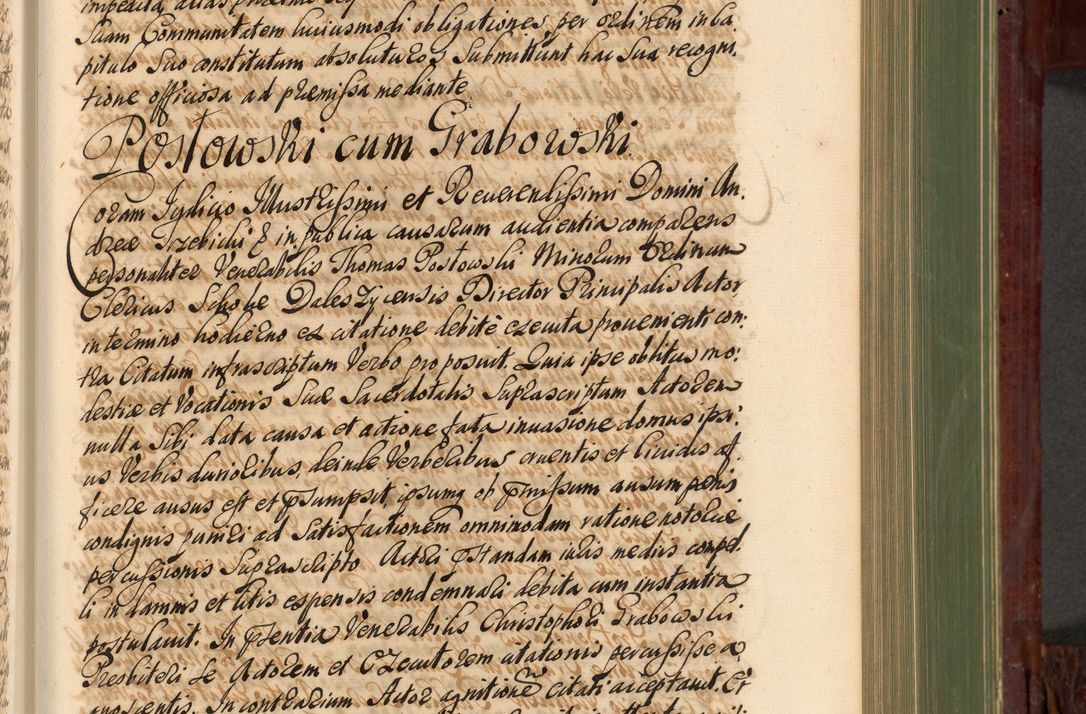 Suam Communitatem huiusmodi obligationes per ordinem in Ca
pitulo Suo constitutum absoluturos Submittunt hac Sua recogni
tione officiosa ad præmissa mediante
Postowski cum Grabowski
Coram Judicio Illustrissimi et Reuerendissimi Domini An
dreæ Trzebicki & in publica causarum audientia comparens
personaliter Venerabilis Thomas Postowski Minorum Ordinum
Clericus Scholæ Daleszycensis Director Principalis Actor
in termino hodierno ex citatione debitè executa prouenienti con:
tra Citatum infrascriptum Verbo proposuit. Quia ipse oblitus mo:
destiæ et Vocationis Suæ Sacerdotalis Suprascriptum Actorem
nulla Sibi data causa et actione facta inuasione domus ipsi:
us Verbis durioribus, deinde Verberibus cruentis et liuidis af:
ficere ausus est et præsumpsit, ipsumq ob præmissum ausum pœnis
condignis puniri ad Satisfactionem omnimodam ratione notoriæ
percussionis Suprascripto Actori præstandam iuris mediis compel
li in damnis et litis expensis condemnari debita cum instantia
postulauit. In præsentia Venerabilis Christophori Grabowski
Presbiteri se Actorem et Executorem citationis percussisse a
gnoscentis. In contrarium Actor agnitionem Citati acceptauit. Et